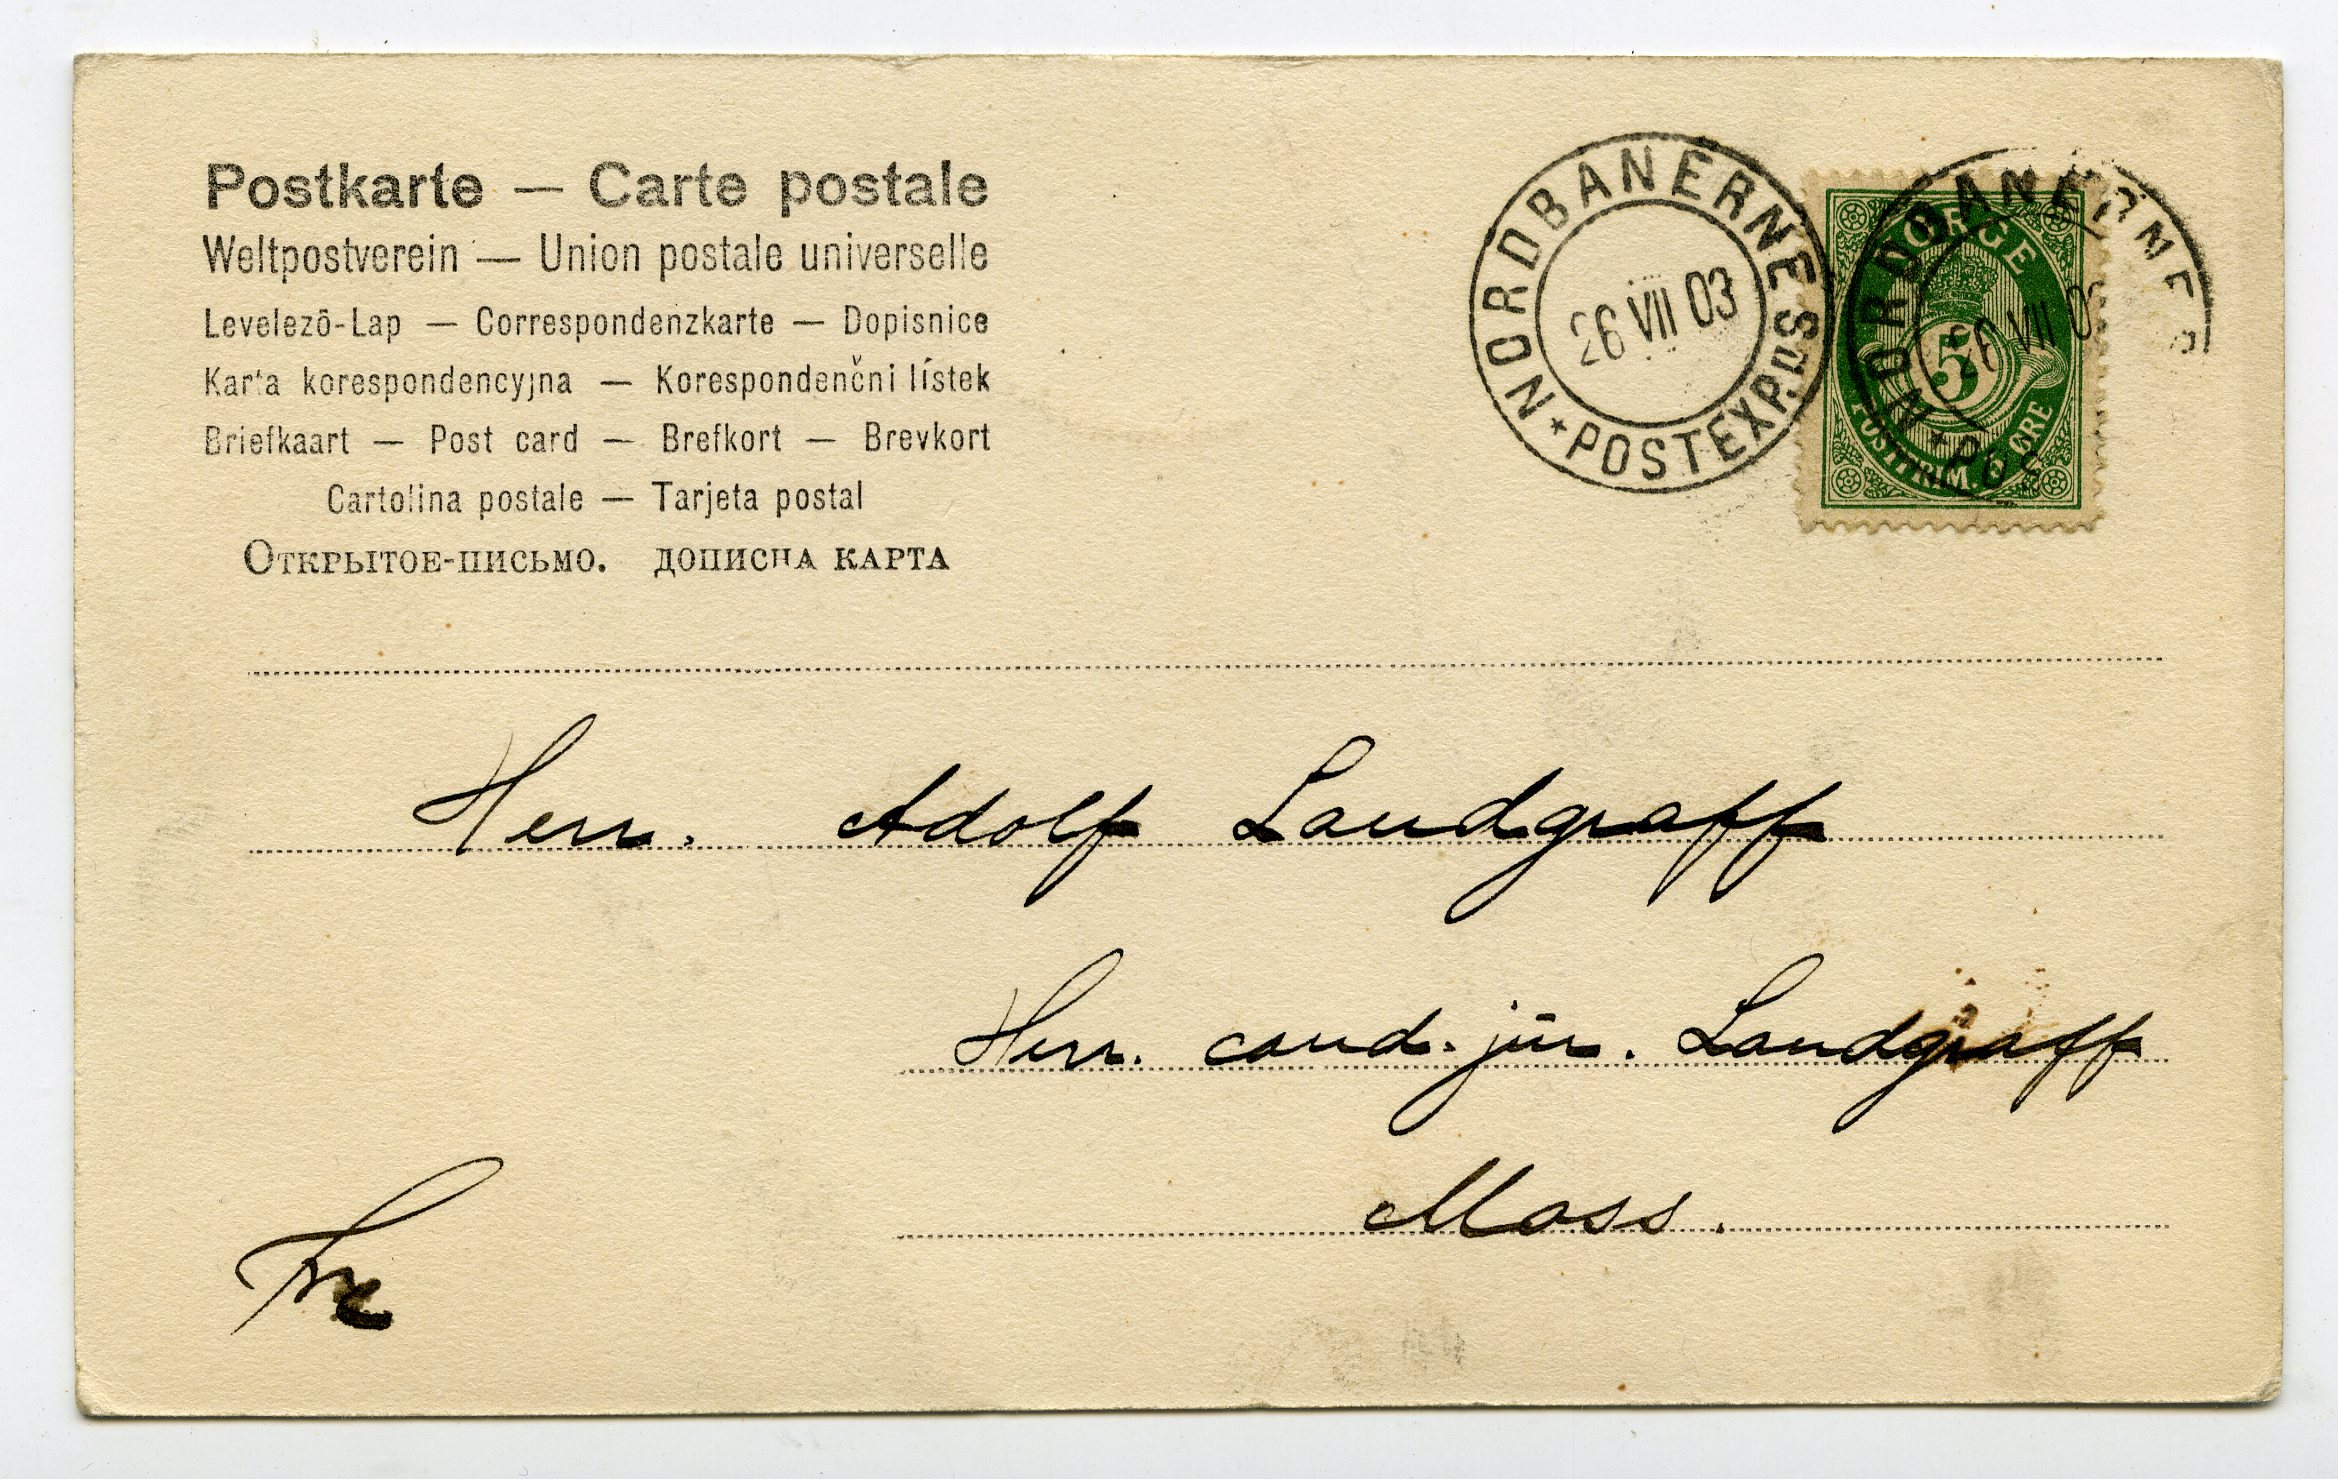 Postkarte — Carte postale
Weltpostverein — Union postale universelle
Levelező-Lap — Correspondenzkarte — Dopisnice
Karta korespondencyjna — Korespondenčni lístek
Briefkaart — Post card — Brefkort — Brevkort
Cartolina postale — Tarjeta postal
Открытое-письмо. дописна карта
NORDBANERNES POSTEXP.
26 VII 03
NORGE
5
POSTFRIM. 5 ØRE
NORDBANERNES
26 VII 0
Herr. Adolf Landgraff
Herr. cand. jūr. Landgraff
Moss.